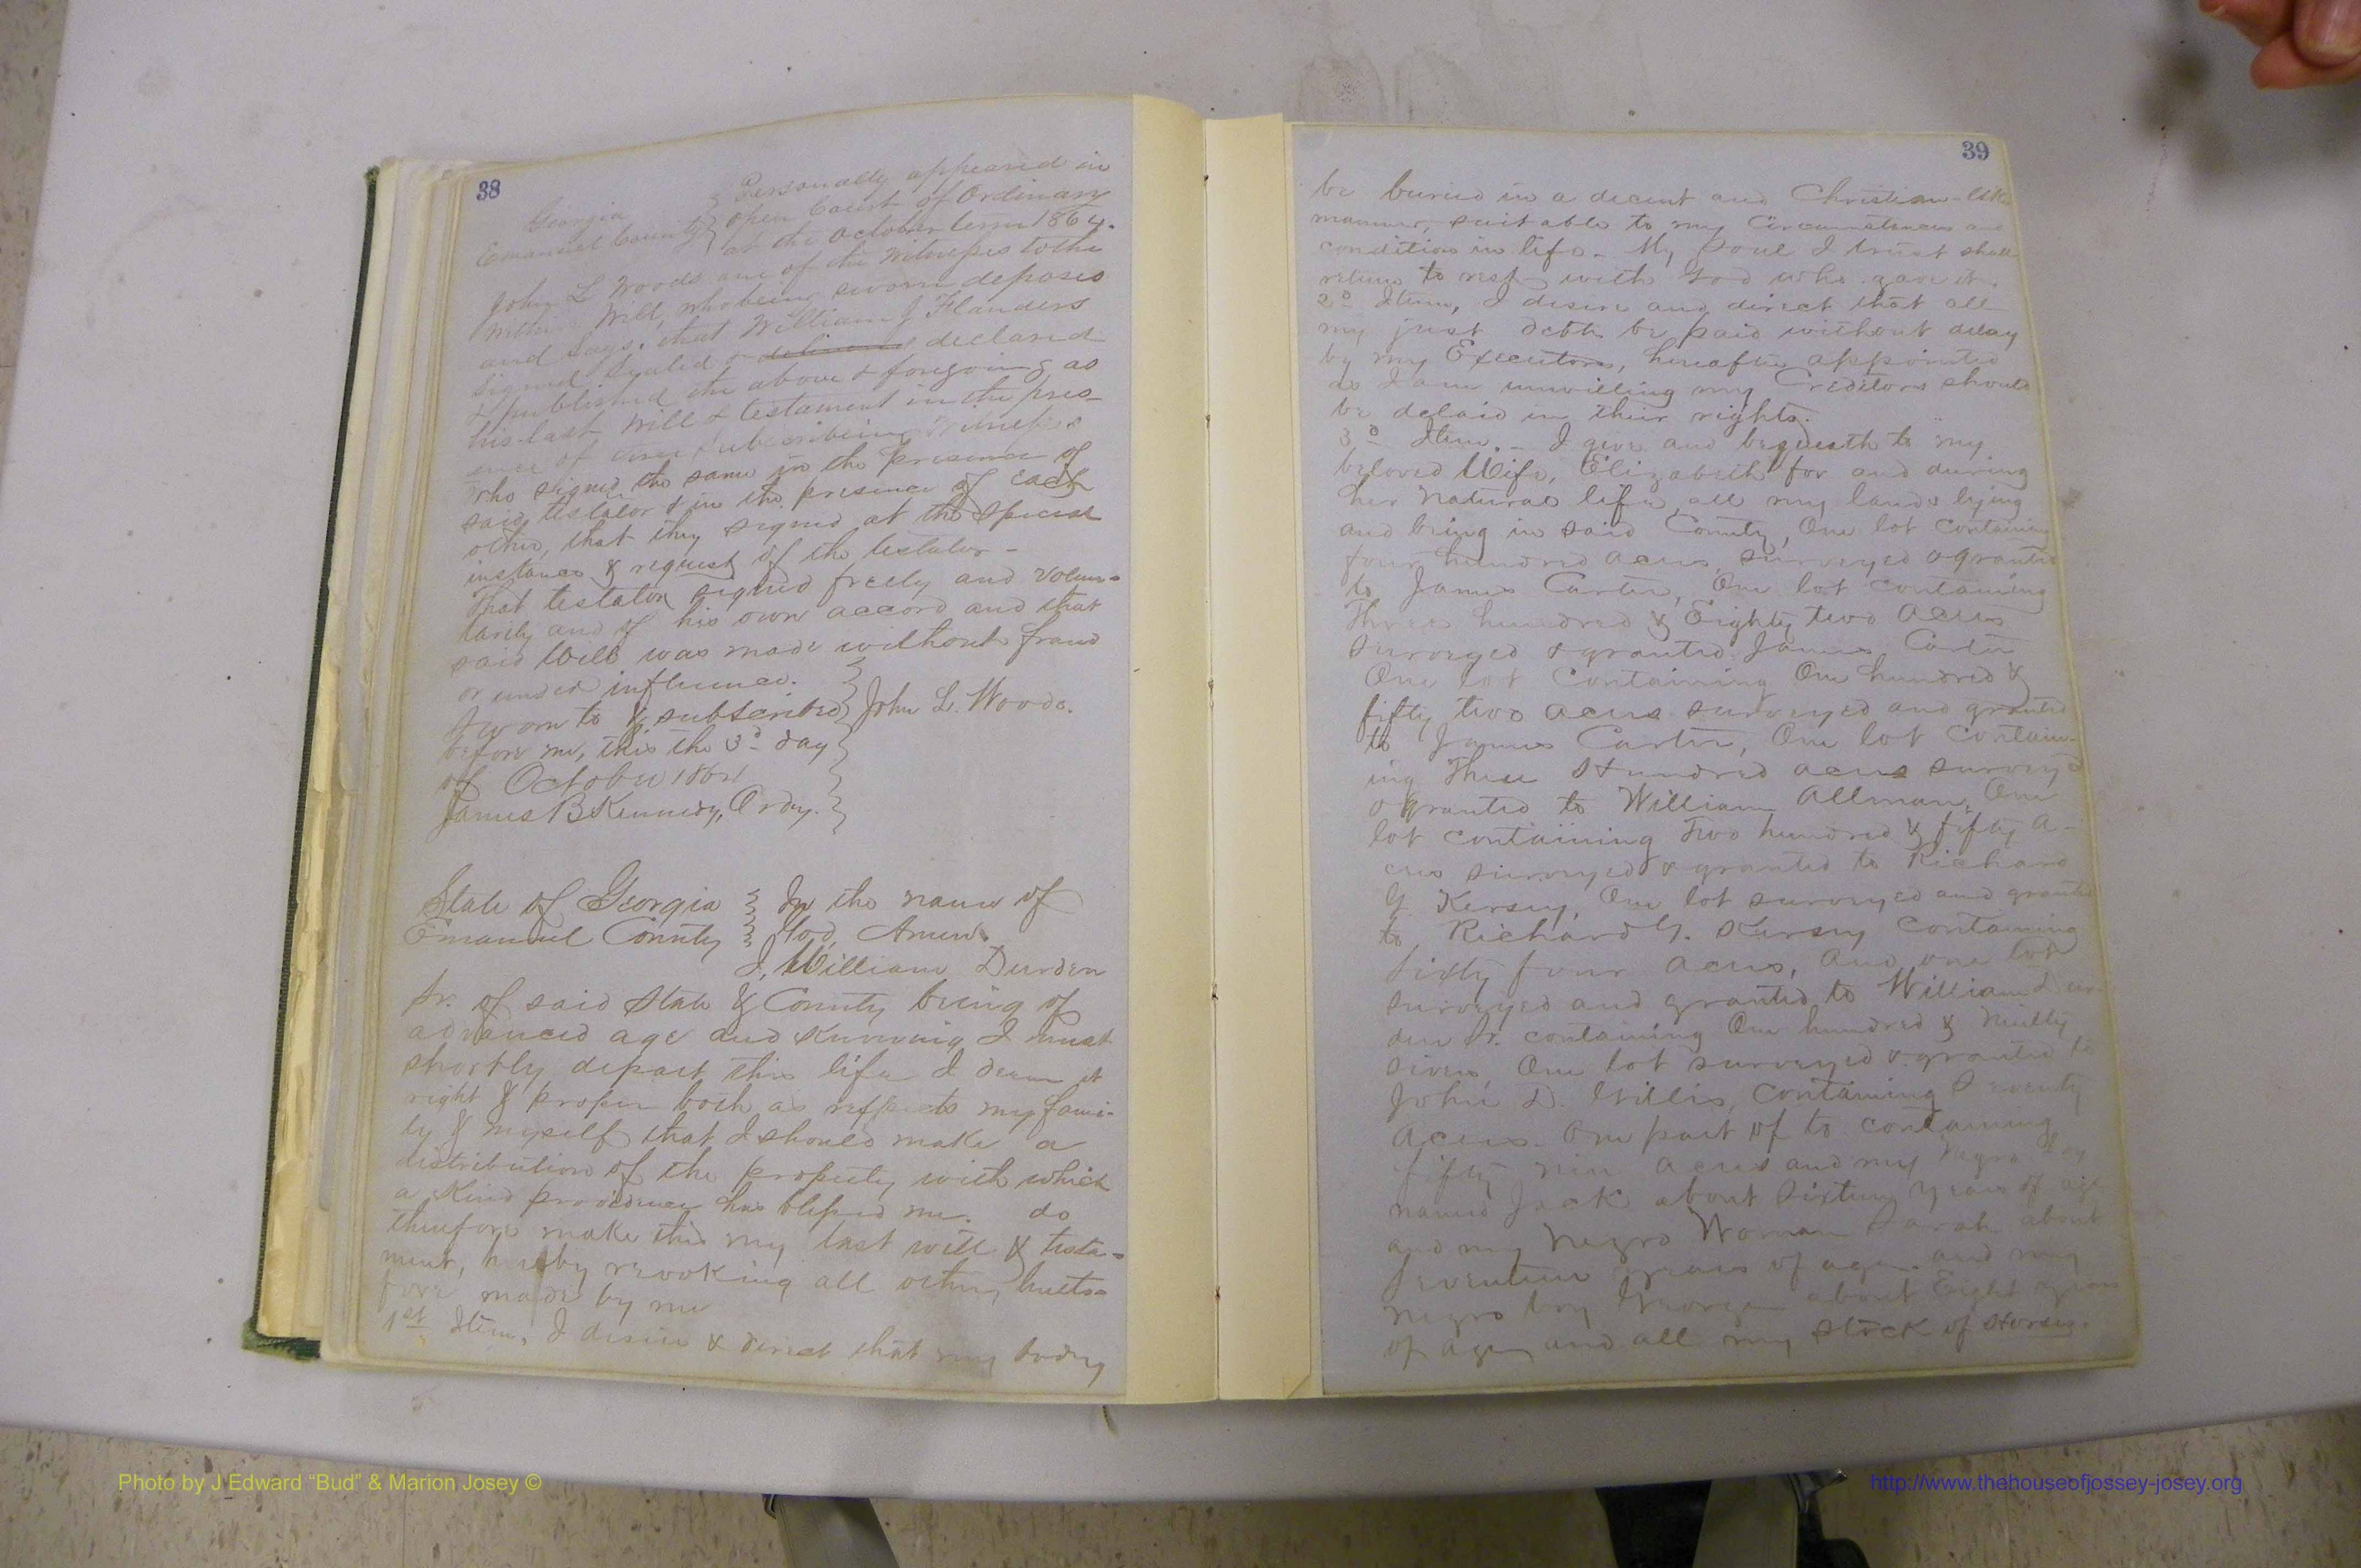 38
Georgia } Personally appeared in
Emanuel County } open Court of Ordinary
at the October term 1864.
John L Woods one of the Witnesses to the
within Will, who being sworn deposes
and says, that William J Flanders
signed sealed & delivered declared
& published the above & foregoing as
his last Will & testament in the pres-
ence of subscribeing Witnesses
who signed the same in the presence of
said testator & in the presence of each
other, that they signed at the special
instance & request of the testator -
That testator signed freely and volun-
tarily and of his own accord and that
said Will was made without fraud
or under influence.
Sworn to & subscribed } John L. Woods.
before me, this the 3d day
of October 1864
James B Kennedy, Ordy.
State of Georgia } In the name of
Emanuel County } God, Amen.
I, William Durden
Sr. of said State & County being of
advanced age and knowing I must
shortly depart this life I deem it
right & proper both as respects my fami-
ly & myself that I should make a
distribution of the property with which
a kind providence has blessed me. do
therefore make this my last will & testa-
ment, hereby revoking all other hereto-
fore made by me
1st Item, I desire & direct that my body
39
be buried in a decent and Christian-like
manner, suitable to my Circumstances and
condition in life - My Soul I trust shall
return to rest with God who gave it.
2d Item, I desire and direct that all
my just debts be paid without delay
by my Executors, hereafter appointed
as I am unwilling my Creditors should
be delaid in their rights.
3d Item. - I give and bequeath to my
beloved Wife, Elizabeth for and during
her natural life, all my lands lying
and being in said County, One lot containing
four hundred acres, surveyed & granted
to James Carter, One lot containing
Three hundred & Eighty two acres
surveyed & granted James Carter
One lot containing One hundred &
fifty two acres surveyed and granted
to James Carter, One lot contain-
ing Three Hundred acres surveyed
& granted to William Allman, One
lot containing Two hundred & fifty a-
cres surveyed & granted to Richard
G. Kersey, One lot surveyed and granted
to Richard G. Kersey containing
Sixty four acres, and one lot
surveyed and granted to William Dur-
den Sr. containing One hundred & Ninty
Seven, One lot surveyed & granted to
John D. Willis, containing Seventy
acres. One part of to containing
fifty nine acres and my Negro Boy
named Jack about Sixteen years of age
and my Negro Woman Sarah about
Seventeen years of age. and my
negro boy George about Eight years
of age and all my stock of Horses.
Photo by J Edward “Bud” & Marion Josey ©
http://www.thehouseofjossey-josey.org